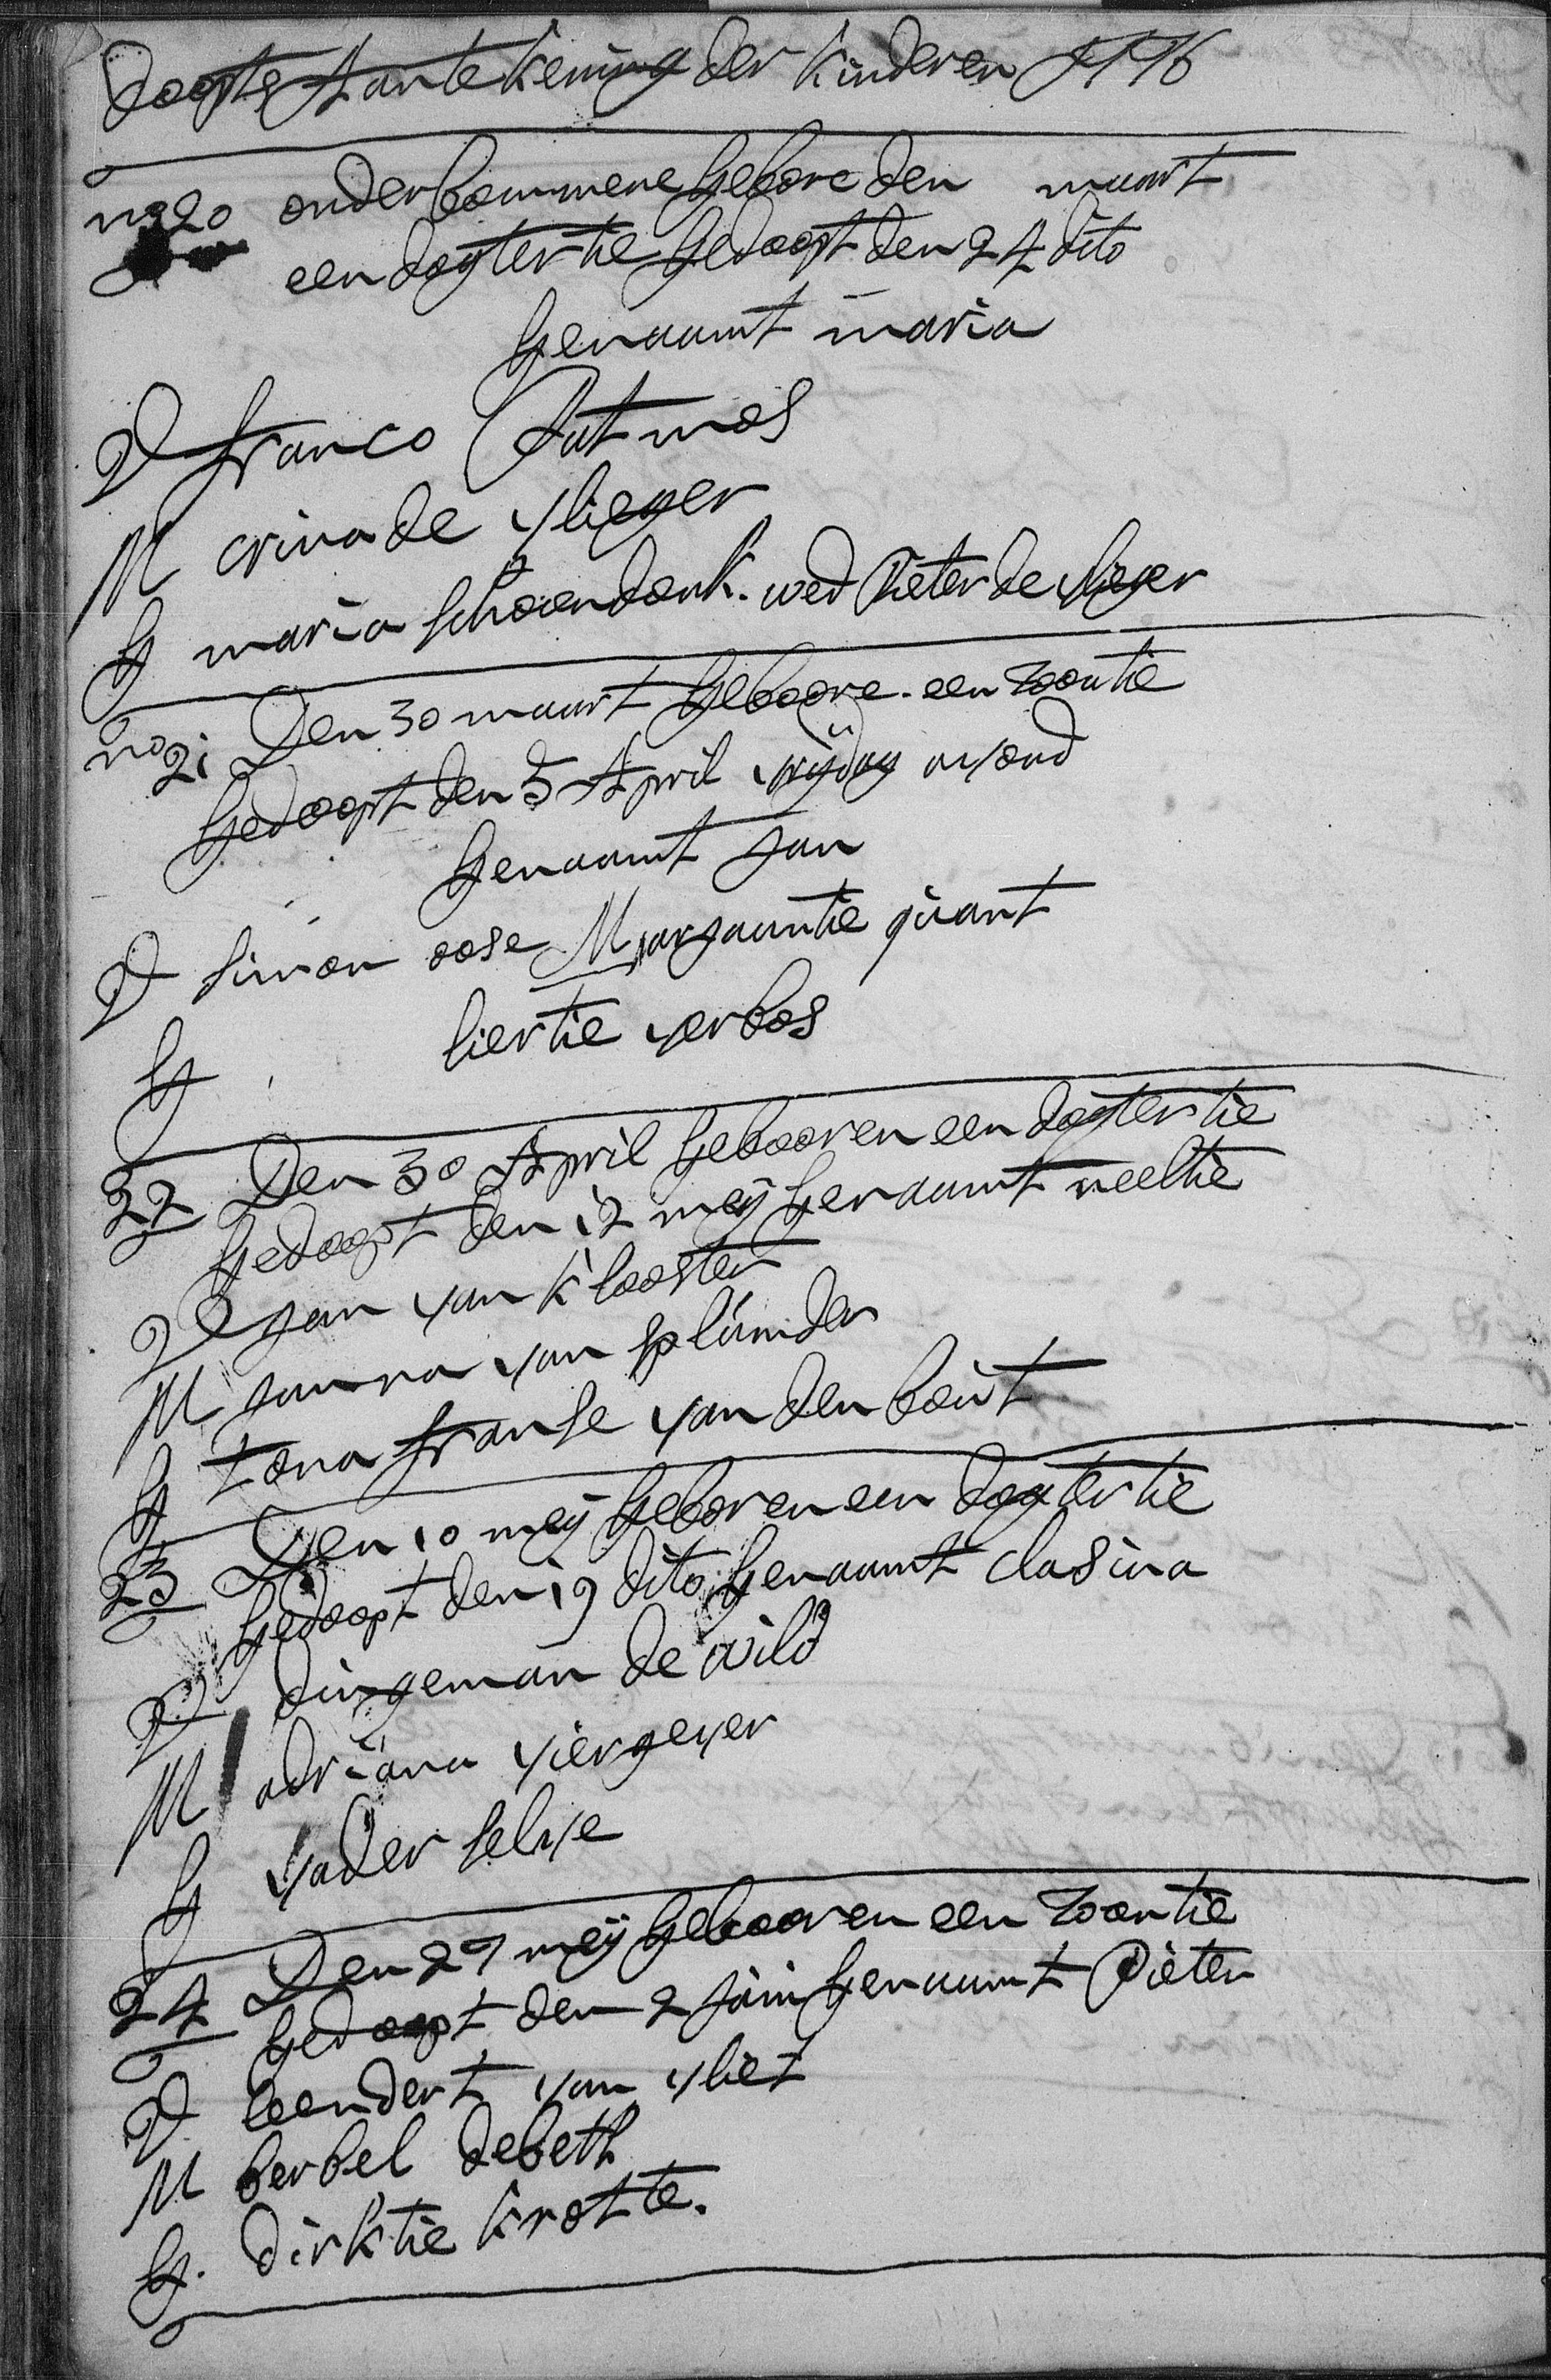 doopte Aantekening der kinderen 1776
no 20 onderbommene Gebore den maart
een dogtertie Gedoopt den 24 dito
Genaamt maria
V franco Patmos
M crina de vlieger
G maria schoondonk. wed Pieter de vlieger
no 21 Den 30 maart Geboore. een zoontie
Gedoopt den 5 April vrijdag avond
Genaamt Jan
V Simon oose Margaantie quant
G liertie verbos
22 Den 30 April Gebooren een dogtertie
Gedoopt den 12 meij Genaamt neeltie
V Jan van klooster
M Janna van Splunder
G tona franse van den bout
23 Den 10 meij Gebooren een dogtertie
Gedoopt den 19 dito Genaamt clasina
V dingeman de wild
M adriana viergever
G vader selve
24 Den 29 meij Gebooren een zoontie
Gedoopt den 2 Juni Genaamt Pieter
V leendert van vliet
M berbel debeth
G. dirktie krotte.